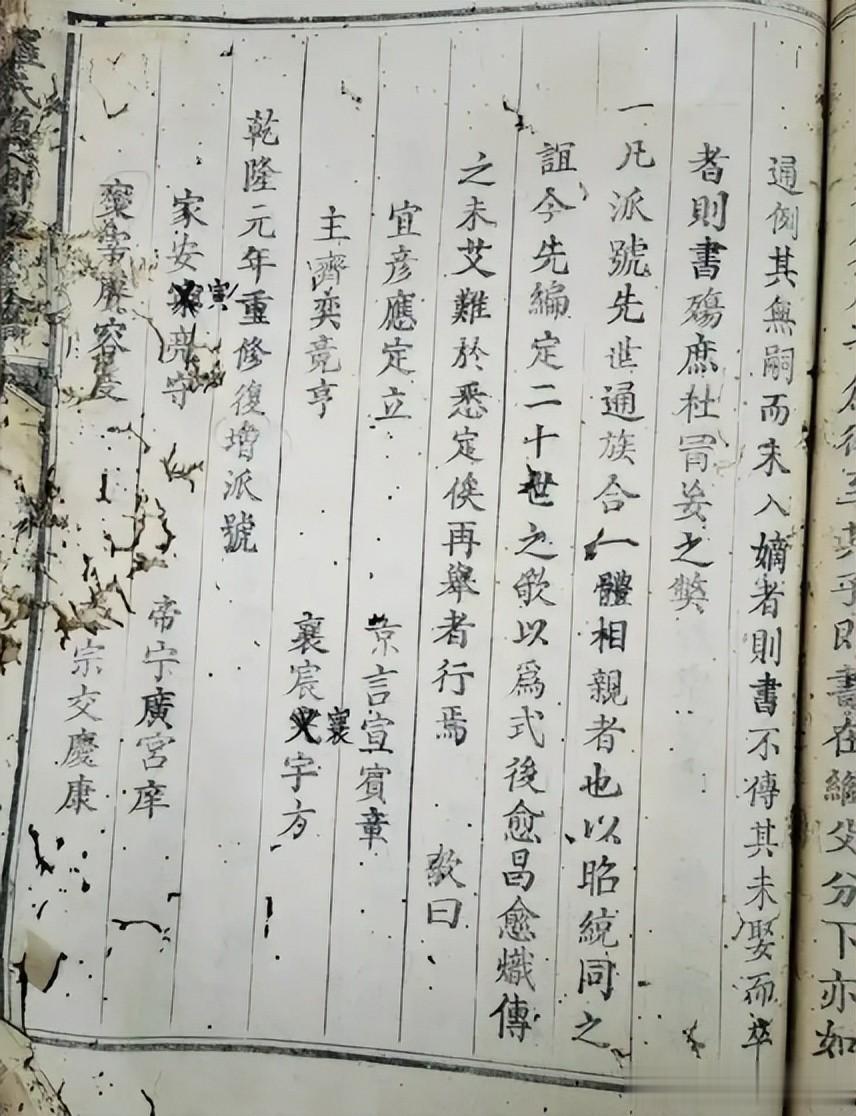 通例其無嗣而未入嫡者則書不傳其未娶而卒
者則書殤庶杜冐妄之獘
一凡派號先世通族合一體相親者也以昭統同之
誼今先編定二十世之歌以爲式後愈昌愈熾傳
之未艾難於悉定俟再舉者行焉 歌曰
宜彥應定立 京言宣賓章
主齊奕竟亨 襄宸襄宇方
乾隆元年重修復增派號
家安寅亮守 帝宁廣宮庠
稟容度 宗交慶康